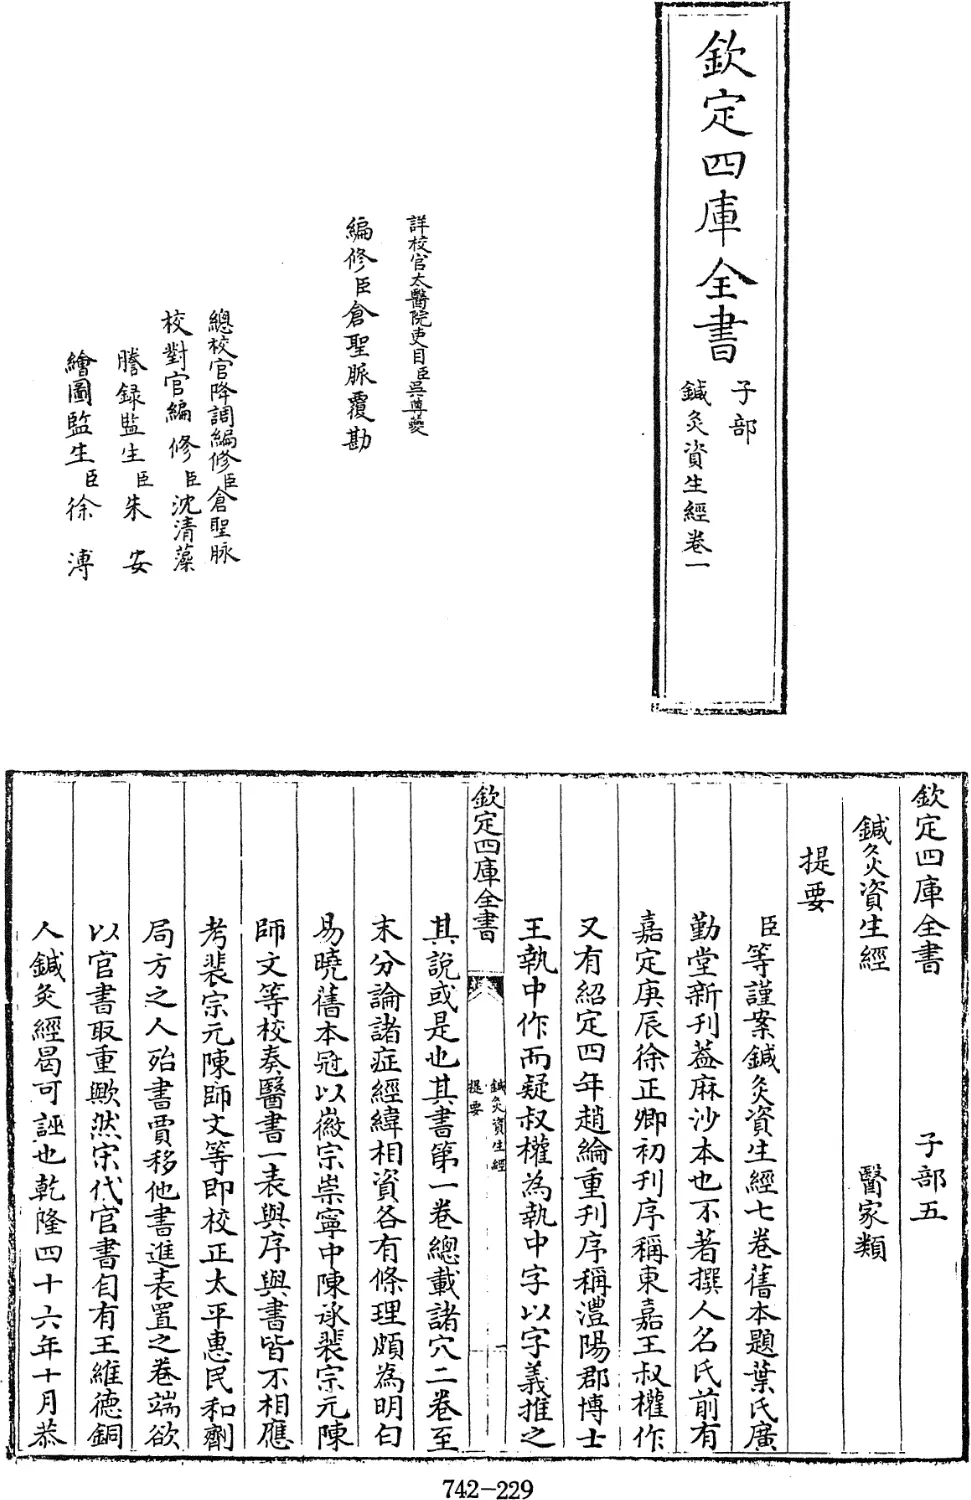 欽定四庫全書
子部
鍼灸資生經卷一
詳校官太醫院吏目臣吳尊夔
編修臣倉聖脈覆勘
總校官降調編修臣倉聖脉
校對官編修臣沈清藻
謄録監生臣朱安
繪圖監生臣徐溥
欽定四庫全書 子部五
鍼灸資生經 醫家類
提要
臣等謹案鍼灸資生經七卷舊本題葉氏廣
勤堂新刊葢麻沙本也不著撰人名氏前有
嘉定庚辰徐正卿初刊序稱東嘉王叔權作
又有紹定四年趙綸重刊序稱澧陽郡博士
王執中作而疑叔權為執中字以字義推之
欽定四庫全書
鍼灸資生經
提要
其說或是也其書第一卷總載諸穴二卷至
末分論諸症經緯相資各有條理頗為明白
易曉舊本冠以徽宗崇寧中陳承裴宗元陳
師文等校奏醫書一表與序與書皆不相應
考裴宗元陳師文等即校正太平惠民和劑
局方之人殆書賈移他書進表置之卷端欲
以官書取重歟然宋代官書自有王維德銅
人鍼灸經曷可誣也乾隆四十六年十月恭
742-229